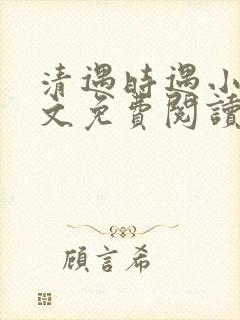 清遇時遇小
文免費閱讀
顧言希